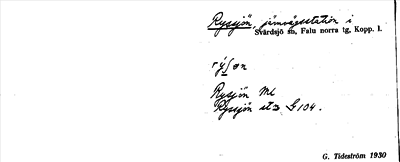 Rysjön, järnvägsstation i
Svärdsjö sn, Falu norra tg, Kopp. l.
Rysjön Ml
Rysjön st
G. Tideström 1930